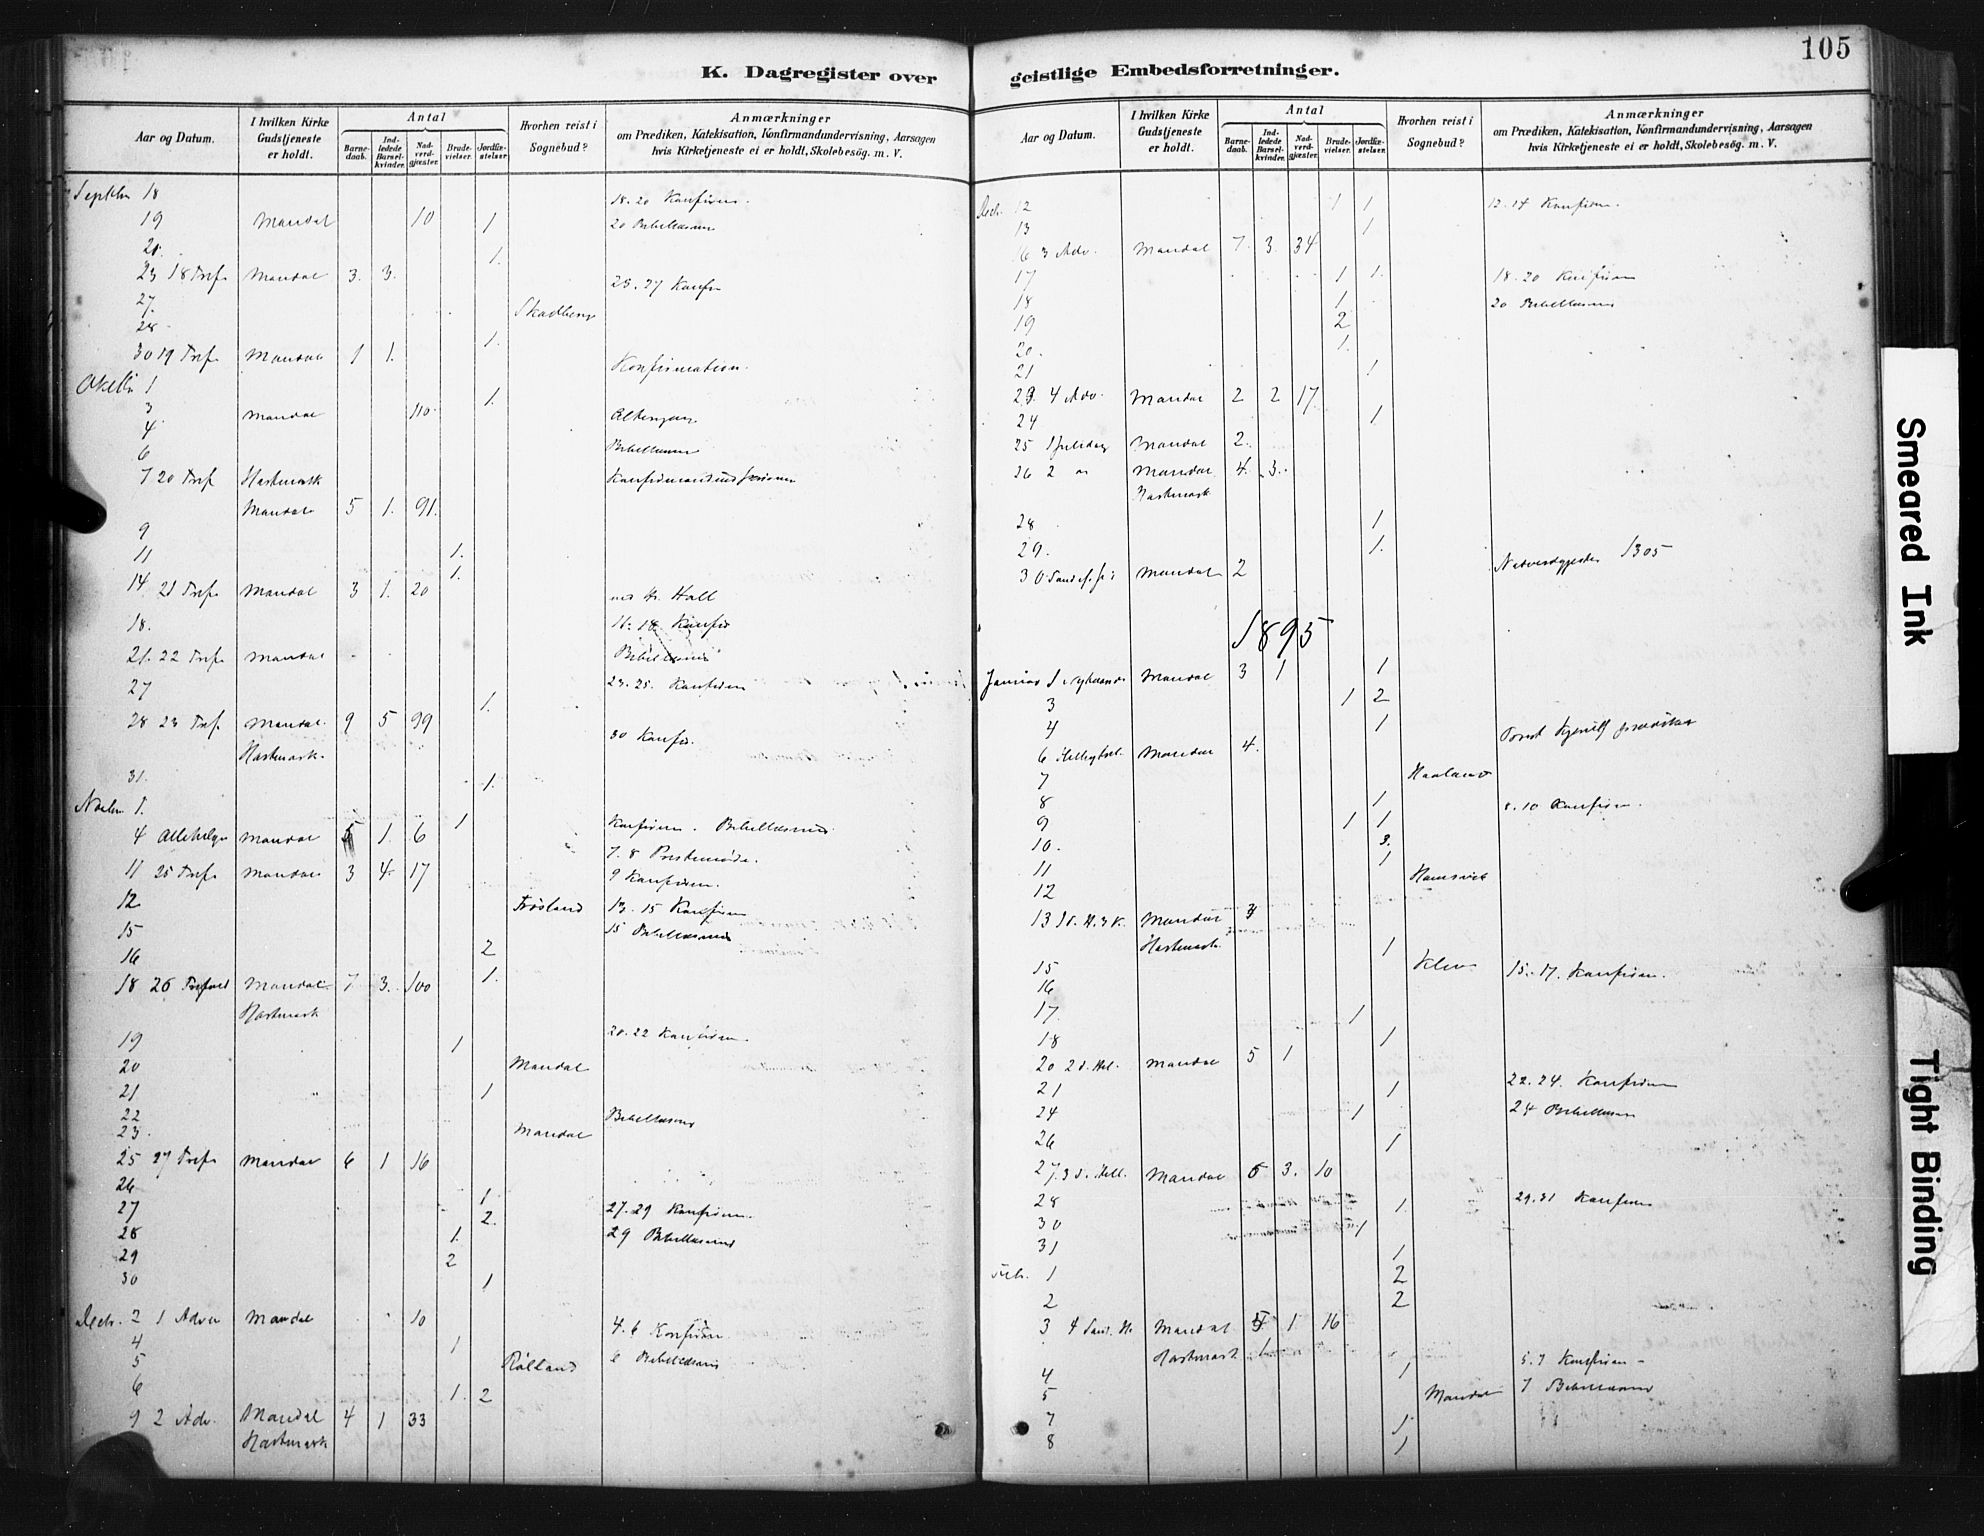 K. Dagregister over
Aar og Datum.
I hvilken Kirke Gudstjeneste er holdt.
Antal
Barnedaab.
Indledede Barselkvinder.
Nadverdgjæster.
Brudevielser.
Jordfæstelser.
Hvorhen reist i Sognebud?
Anmærkninger
om Prædiken, Katekisation, Konfirmandundervisning, Aarsagen
hvis Kirketjeneste ei er holdt, Skolebesøg. m. V.
18 18-20 Konfirm.
19 Mandal 10 1 20 Bibellæsning
21. 1.
23 18 Tref. Mandal 3. 3. 23-27 Konfir
27.
28. 1.
30 19 Tref. Mandal 1 1. Konfirmation.
1
3 Mandal 110
4
6 Bibellæsn
7 20 Tref Hartmark
Mandal 5 1. 91.
9 1.
11 1.
14 21 Tref. Mandal 3 1. 20 Hall
18.
21. 22 Tref. Mandal Bibellæsning
27 1. 23-25. Konfirm
28 23 Tref. Mandal 9 5 99 30 Konfir.
Hartmark
31. 1.
1. 1
4 Allehelgen Mandal 5 1. 6 Konfirm. Bibellæsning
11 25 Tref. Mandal 3 4 17 7.8 Prestemøde.
9 Konfirm.
12 Frøsland 13-15 Konfirm
15 15 Bibellæsning
16 2
18 26 Trefold Mandal 7 3. 100 1.
Hartmark
19 1 20-22 Konfirm.
20 Mandal
21 1
22 Bibellæsning
23. Mandal
25 27 Tref. Mandal 6 1 16
26 1
27 2. 27-29 Konfirm.
28 1. 29 Bibellæsning
29 2
30 1
Decb. 2 1 Adven Mandal 10
4 1 4-6 Konfirm.
5 6 Bibellæsning
6 1. 2
9 2 Adv. Mandal 4 1 33
Hartmark
105
geistlige Embedsforretninger.
Aar og Datum.
I hvilken Kirke Gudstjeneste er holdt.
Antal
Barnedaab.
Indledede Barselkvinder.
Nadverdgjæster.
Brudevielser.
Jordfæstelser
Hvorhen reist i Sognebud?
Anmærkninger
om Prædiken, Katekisation, Konfirmandundervisning, Aarsagen
hvis Kirketjeneste ei er holdt, Skolebesøg. m. V.
Decb. 12 1 1 12-14 Konfirm.
13 1
16 3 Adv. Mandal 7. 3. 34
17 1 1. 18-20 Konfirm
18 1 20 Bibellæsning
19 2
20. 1.
21 1
23. 4 Adv. Mandal 2 2 17
24 1
25 1 Juledag Mandal 2.
26 2 Mandal 4. 3.
Hartmark
28 1
29. 1.
30 Mandal 2 Nadverdgjester 1305
1895
Januar 1 Nytaarsd. Mandal 3 1 1
3 1 2
4 1
6 Mandal 4.
7 Haaland
8 1 8-10 Konfirm.
9 1 1
10. 3.
11 1
12
13 Mandal
Hartmark
15 1 Kleven 15-17. Konfirm.
16
17. 1
18 1
20 2 S. Hel. Mandal 5 1
21 1 22-24. Konfirm
24 1 24 Bibellæsn
26 1
27. 3 S. Hell. Mandal 6 3. 10
28 1 29-31 Konfirm
30 1
31 1
Feb. 1 2
2 2
3 4 Mandal 5 1 16
Hartmark 1
4 1 5-7 Konfirm
5 Mandal 7 Bibellæsning
7 1
8 1
Smeared Ink
Tight Binding